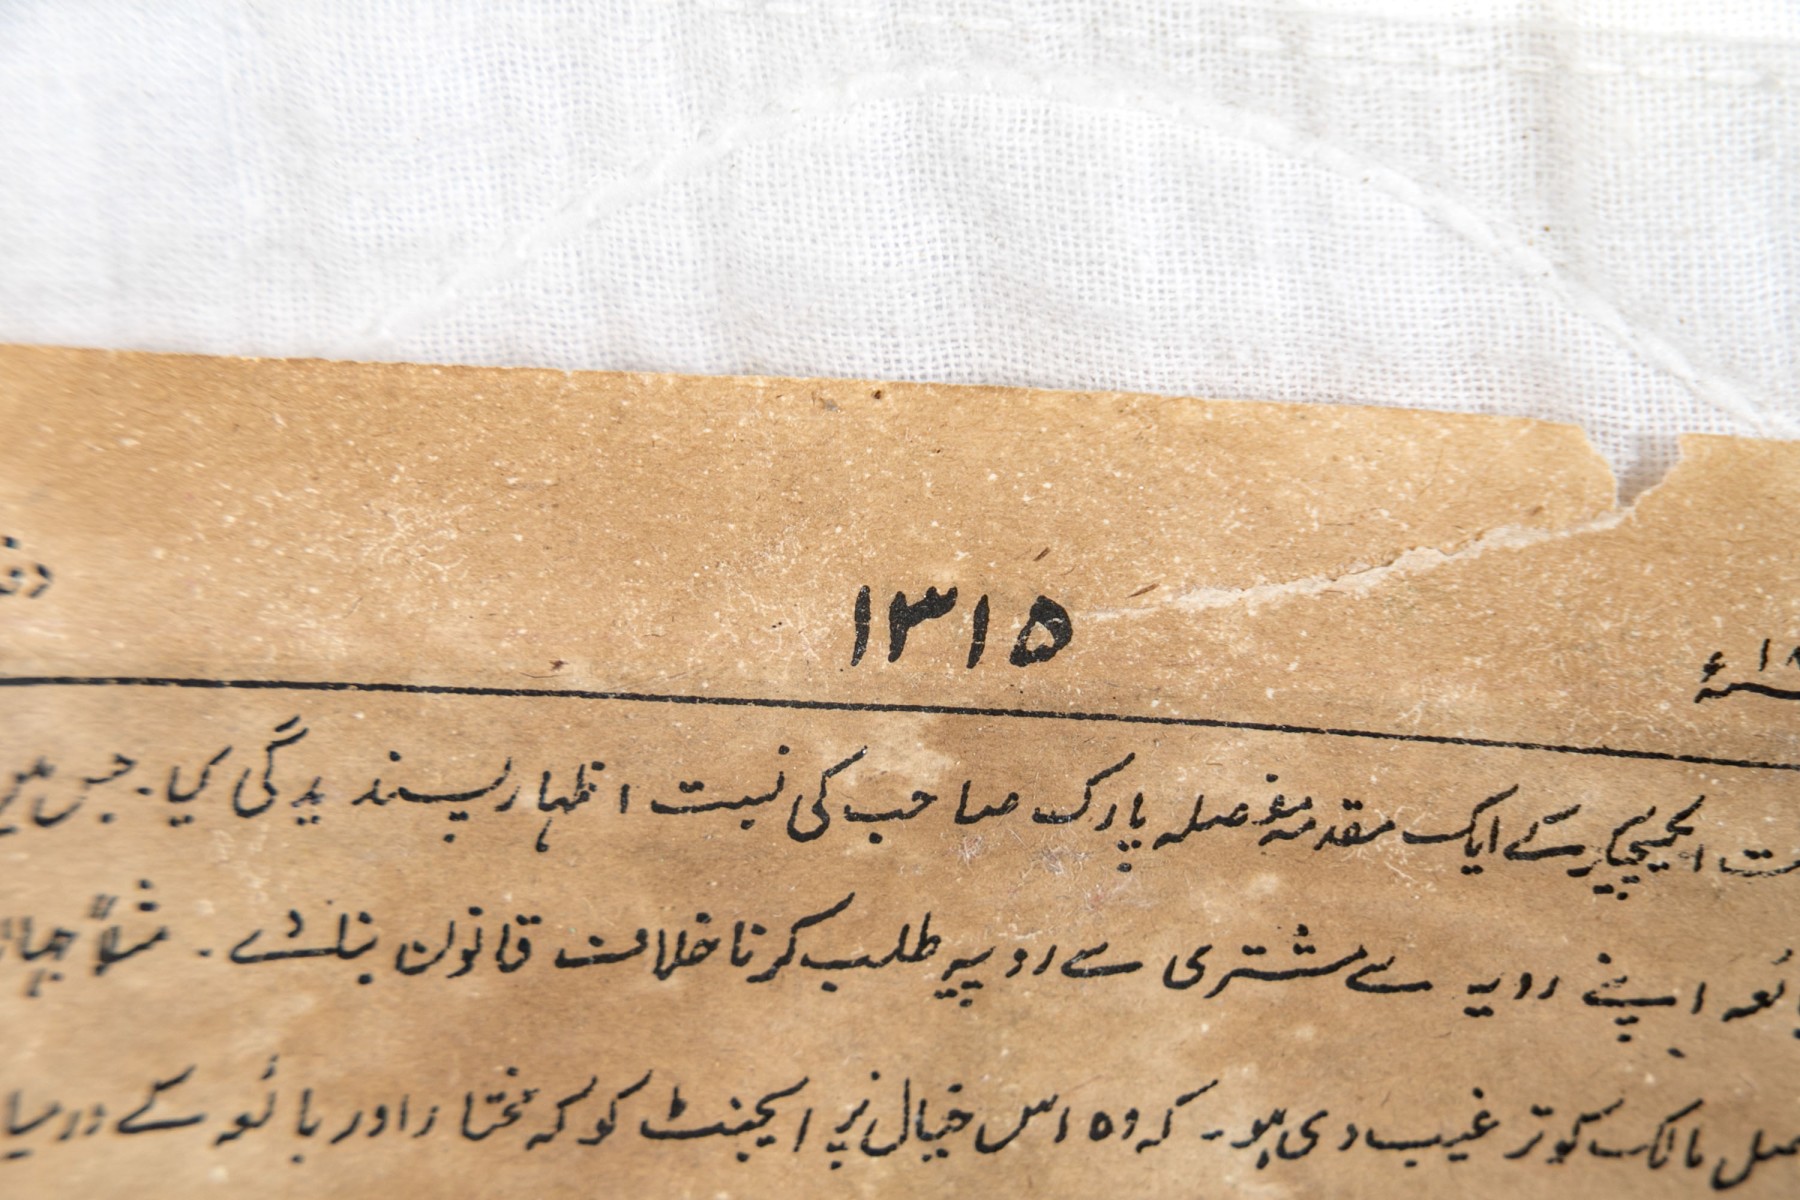 ۱۳۱۵
ایک مقدمہ مفصلہ پارک صاحب کی نسبت اظہار پسندیدگی کیا۔ جس میں
اپنے روپیہ سے مشتری سے روپیہ طلب کرنا خلاف قانون ہے۔ مثلاً جہاں
مالک کو ترغیب دی ہو۔ کہ وہ اس خیال پر ایجنٹ کو کہ مختار اور بائع کے درمیا